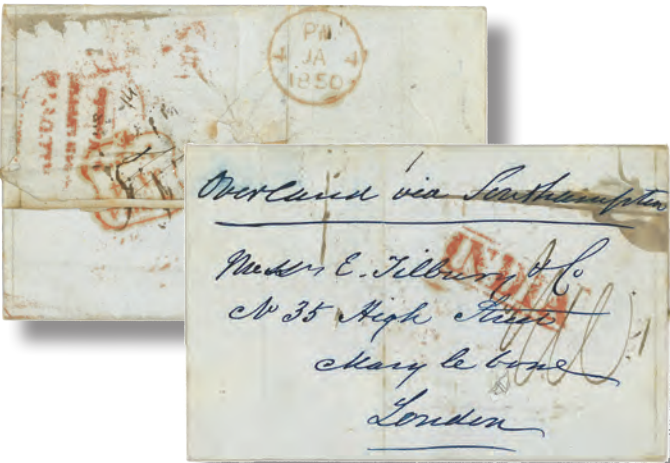 PM
JA
1850
Overland via Southampton
INDIA
Messrs E. Tilbury & Co
No 35 High Street
Mary le bone
London